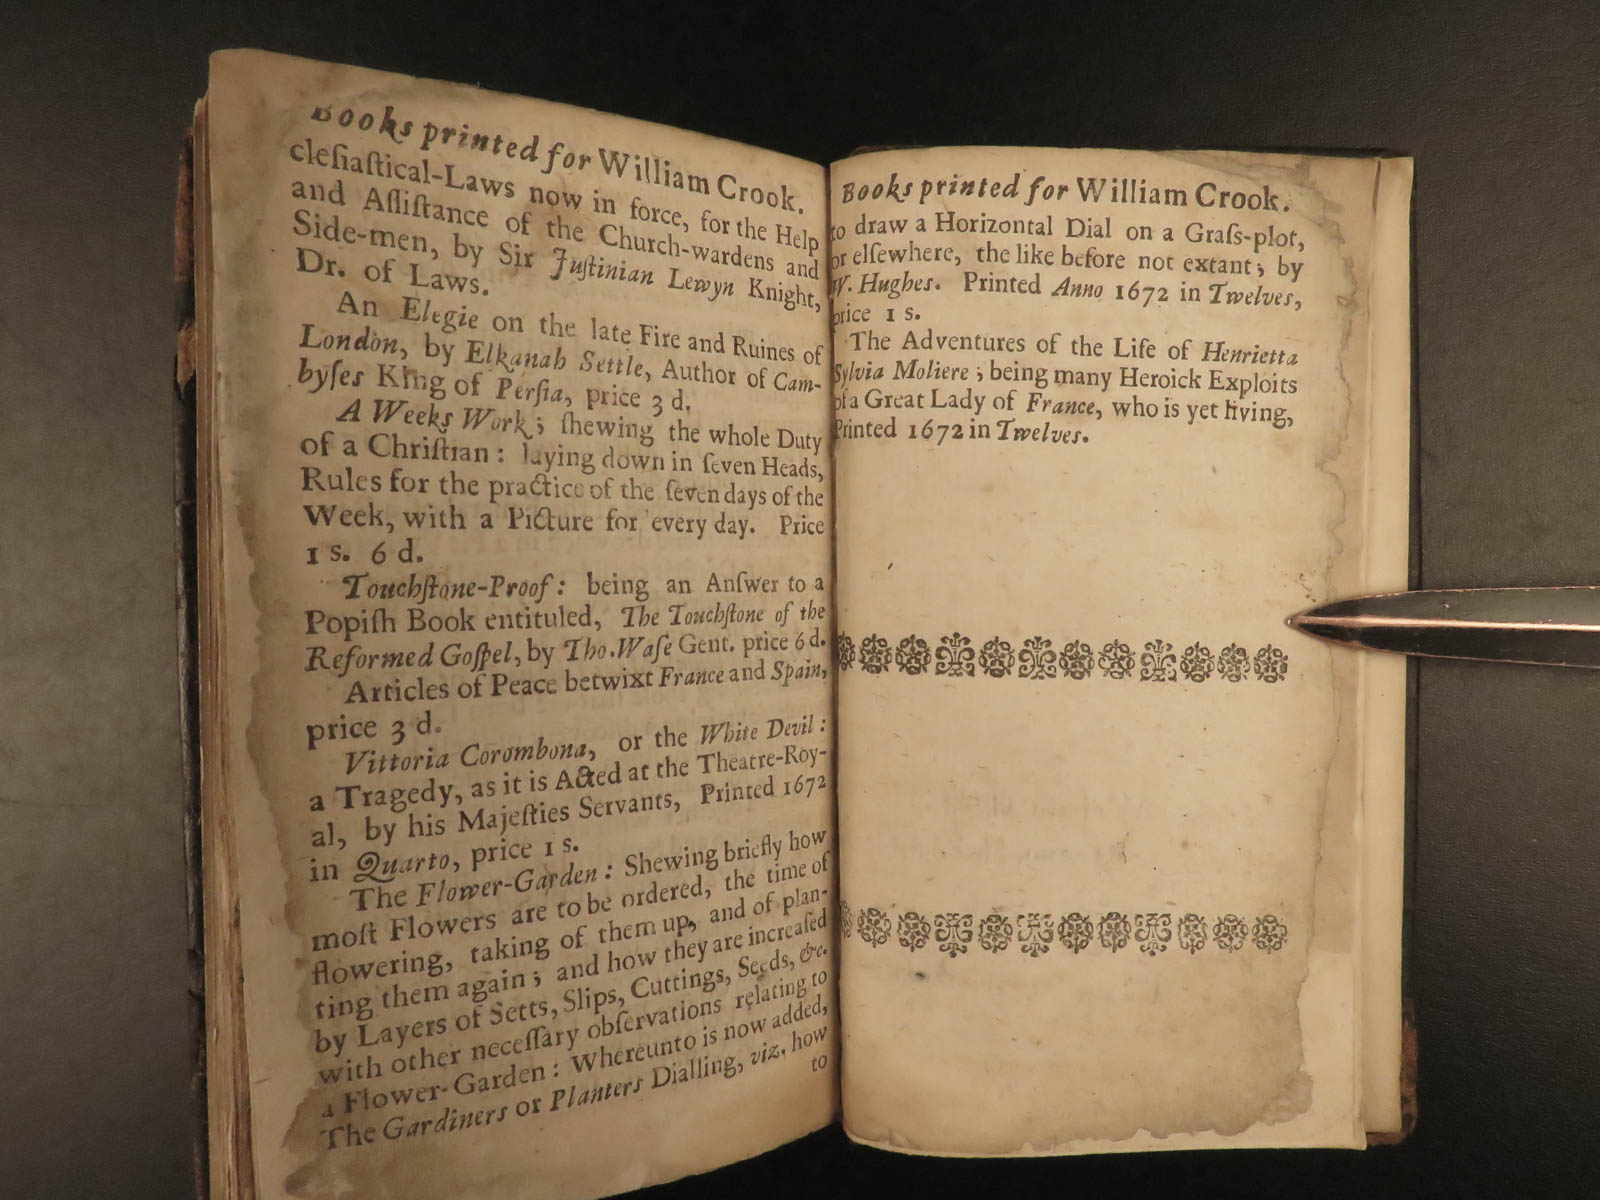 Books printed for William Crook.
cleſiaſtical-Laws now in force, for the Help
and Aſſiſtance of the Church-wardens and
Side-men, by Sir Juſtinian Lewyn Knight,
Dr. of Laws.
An Elegie on the late Fire and Ruines of
London, by Elkanah Settle, Author of Cam-
byſes King of Perſia, price 3 d.
A Weeks Work; ſhewing the whole Duty
of a Chriſtian: laying down in ſeven Heads,
Rules for the practice of the ſeven days of the
Week, with a Picture for every day. Price
1 s. 6 d.
Touchſtone-Proof: being an Anſwer to a
Popiſh Book entituled, The Touchſtone of the
Reformed Goſpel, by Tho. Waſe Gent. price 6 d.
Articles of Peace betwixt France and Spain,
price 3 d.
Vittoria Corombona, or the White Devil:
a Tragedy, as it is Acted at the Theatre-Roy-
al, by his Majeſties Servants, Printed 1672
in Quarto, price 1 s.
The Flower-Garden: Shewing briefly how
moſt Flowers are to be ordered, the time of
flowering, taking of them up, and of plan-
ting them again; and how they are increaſed
by Layers of Setts, Slips, Cuttings, Seeds, &c.
with other neceſſary obſervations relating to
a Flower-Garden: Whereunto is now added,
The Gardiners or Planters Dialling, viz. how
to
Books printed for William Crook.
to draw a Horizontal Dial on a Graſs-plot,
or elſewhere, the like before not extant; by
W. Hughes. Printed Anno 1672 in Twelves,
price 1 s.
The Adventures of the Life of Henrietta
Sylvia Moliere; being many Heroick Exploits
of a Great Lady of France, who is yet living,
Printed 1672 in Twelves.